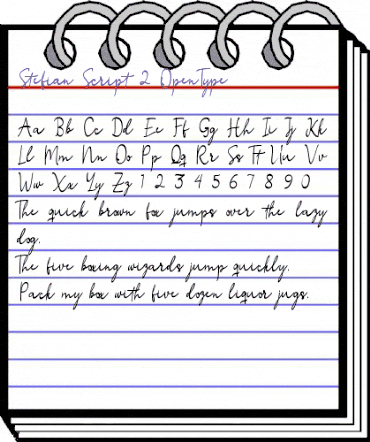 Stefian Script 2 OpenType
Aa Bb Cc Dd Ee Ff Gg Hh Ii Jj Kk
Ll Mm Nn Oo Pp Qq Rr Ss Tt Uu Vv
Ww Xx Yy Zz 1 2 3 4 5 6 7 8 9 0
The quick brown fox jumps over the lazy
dog.
The five boxing wizards jump quickly.
Pack my box with five dozen liquor jugs.